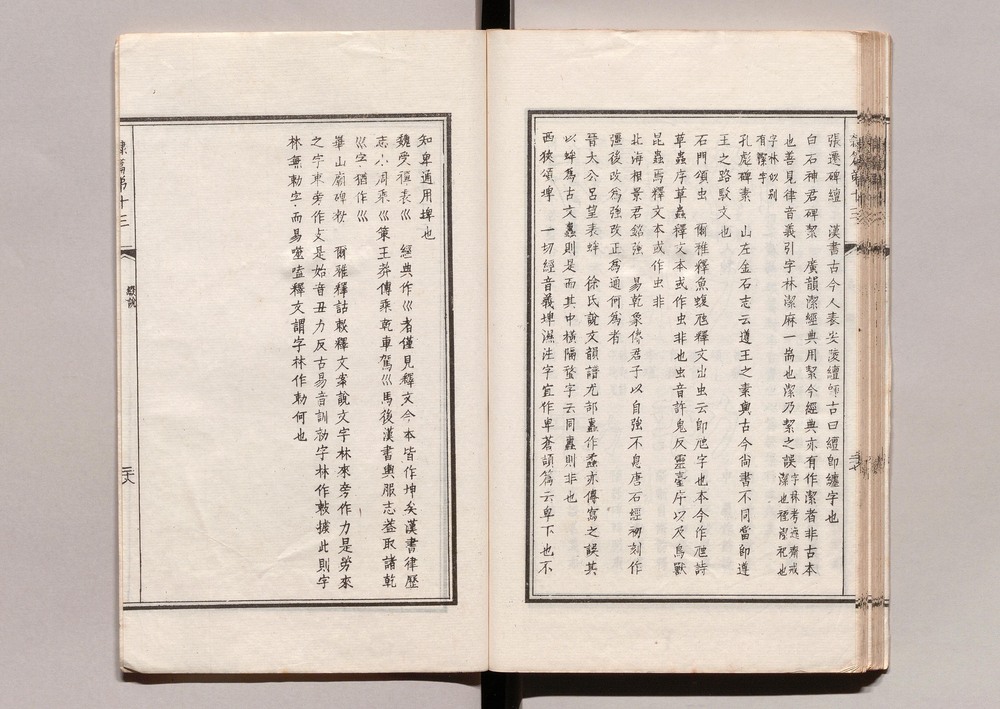 張遷碑纏　漢書古今人表尖陵纏師古曰纏即纏字也
白石神君碑絜　廣韻潔經典用絜今經典亦有作潔者非古本
也善見律音義引字林潔麻一耑也潔乃絜之誤
字林考逸齋戒潔也禋潔祀也
字林収別有潔字
孔彪碑素　山左金石志云遵王之素與古今尚書不同當即遵
王之路駁文也
石門頌虫　爾雅釋魚蝮虺釋文出虫云即虺字也本今作虺詩
草蟲序草蟲釋文本或作虫非也虫音許鬼反靈臺序以及鳥獸
昆蟲焉釋文本或作虫非
北海相景君銘強　易乾象傳君子以自強不息唐石經初刻作
彊後改為強改正為通何為者
晉太公呂望表蜂　徐氏說文韻譜尤部蟊作蝥亦傳寫之誤其
以蜂為古文蠭則是而其中橫隔螸字云同蠭則非也
西狹頌埤　一切經音義埤濕注字宜作卑蒼頡篇云卑下也不
知卑通用埤也
魏受禪表巛　經典作巛者僅見釋文今本皆作坤矣漢書律歷
志八周乘巛策王莽傳乘乾車駕巛馬後漢書輿服志蓋取諸乾
巛字猶作巛
華山廟碑勑　爾雅釋詁敕釋文案說文字林來旁作力是勞來
之字東旁作攴是始音丑力反古易音訓勑字林作敕據此則字
林無勅字而易噬嗑釋文謂字林作勅何也
隸篇第十三
續說